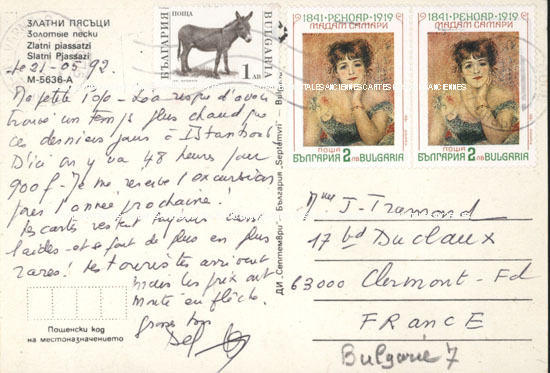 ЗЛАТНИ ПЯСЪЦИ
Золотые пески
Zlatni piassatzi
Slatni Pjassazi
Le 21-05-92.
M-5636-A
Ma petite
d'avoir
trouvé un temps plus chaud que
ces derniers jours à Istanboul
D'ici on y va 48 heures pour
900f - Je me réserve l'excursion
pour l'année prochaine!
Les cartes restent toujours
laides - et se font de plus en plus
rares! Les touristes arrivent
mais les prix ont
monté en flèche.
Пощенски код
на местоназначението
ДИ „Септември" - България „Septemvri" - Bulgaria
ПОЩА
БЪЛГАРИЯ
BULGARIA
1 ЛВ
1841-РЕНОАР-1919
МАДАМ САМАРИ
ПОЩА
БЪЛГАРИЯ 2ЛВ BULGARIA
1841-РЕНОАР-1919
МАДАМ САМАРИ
ПОЩА
БЪЛГАРИЯ 2ЛВ BULGARIA
CARTES ANCIENNES
Mme J-Tramond
17 bd Duclaux
63000 Clermont-Fd
FRANCE
Bulgarie 7